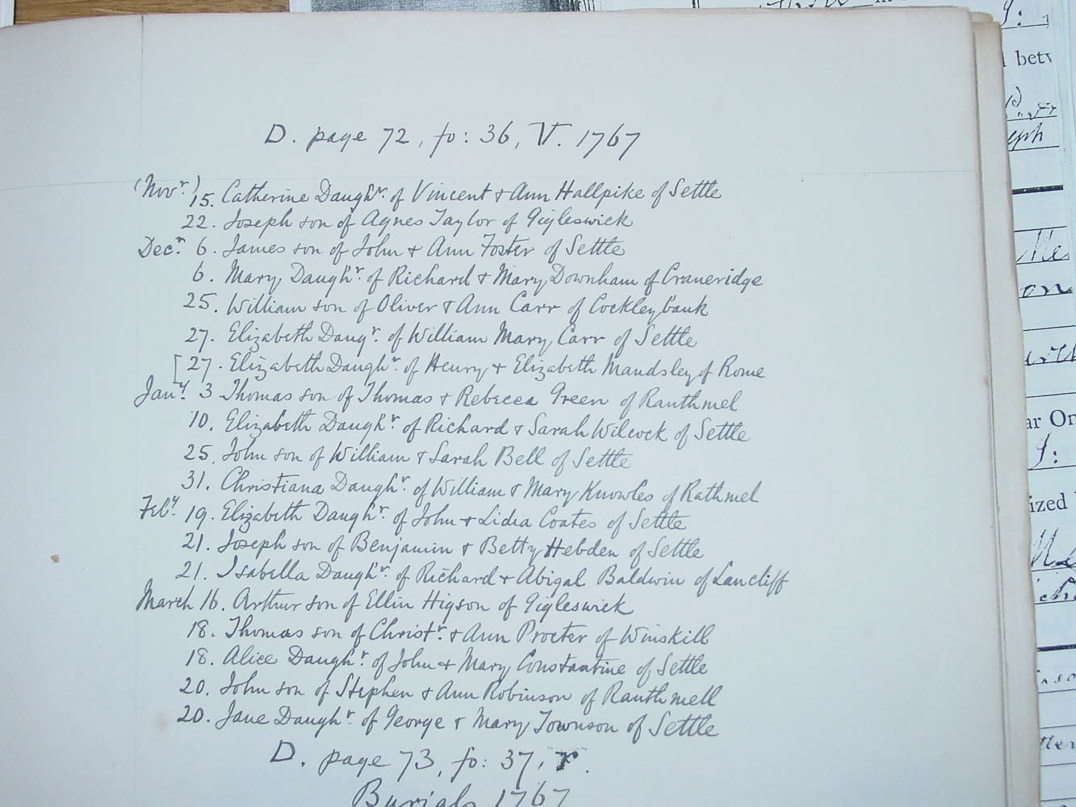 D. page 72, fo: 36, V. 1767
(Novr.) 15. Catherine Daughr. of Vincent & Ann Hallpike of Settle
22. Joseph son of Agnes Taylor of Gigleswick
Decr. 6. James son of John & Ann Foster of Settle
6. Mary Daughr. of Richard & Mary Downham of Craneridge
25. William son of Oliver & Ann Carr of Cockleybank
27. Elizabeth Daugr. of William Mary Carr of Settle
[27. Elizabeth Daughr. of Henry & Elizabeth Maudsley of Rome
Jany. 3 Thomas son of Thomas & Rebecca Green of Rauthmel
10. Elizabeth Daughr. of Richard & Sarah Wilcock of Settle
25. John son of William & Sarah Bell of Settle
31. Christiana Daughr. of William & Mary Knowles of Rathmel
Feby. 19. Elizabeth Daughr. of John & Lidia Coates of Settle
21. Joseph son of Benjamin & Betty Hebden of Settle
21. Isabella Daughr. of Richard & Abigal Baldwin of Lancliff
March 16. Arthur son of Ellin Higson of Gigleswick
18. Thomas son of Christr. & Ann Procter of Winskill
18. Alice Daughr. of John & Mary Constantine of Settle
20. John son of Stephen & Ann Robinson of Rauthmell
20. Jane Daughr. of George & Mary Townson of Settle
D. page 73, fo: 37, r.
Burials 1767